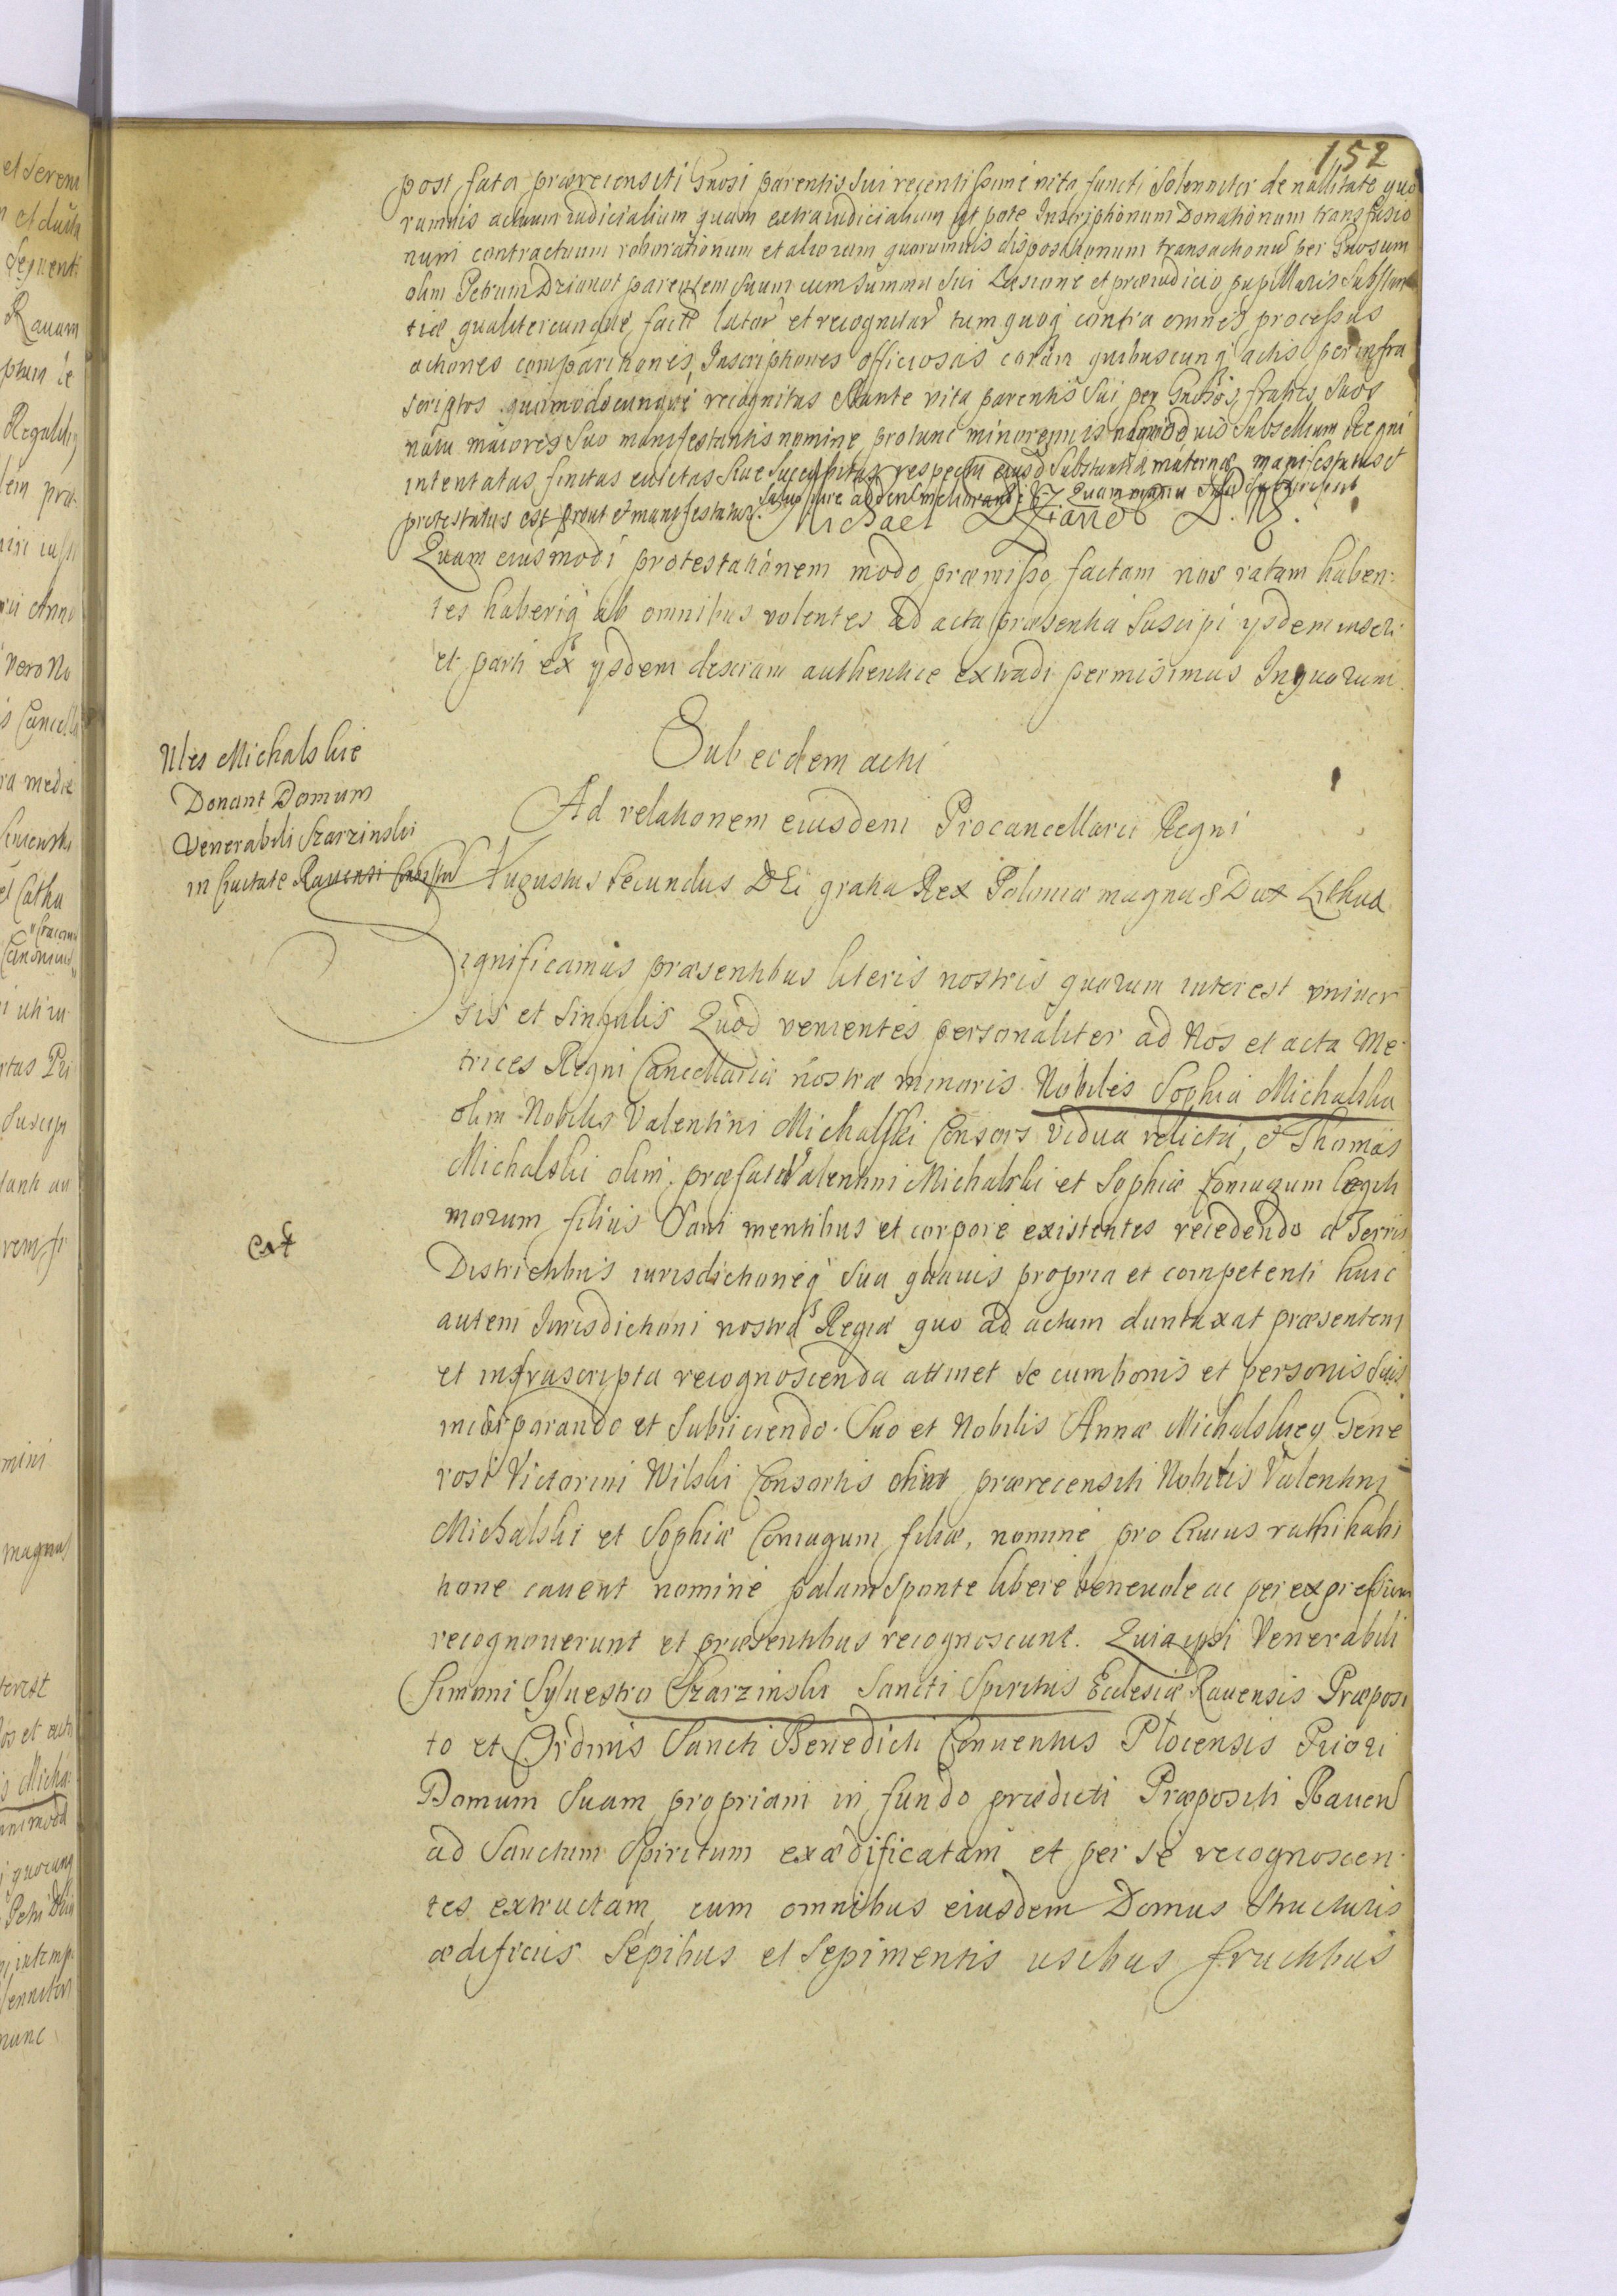 152
post fata præreciensiti Gnosi parentis sui recentissime vita functi Solenniter de nullitate quo
rumvis actuum iudicialium quam extraiudicialium ut pote Inscriptionum Donationum transfusio
num contractuum roborationum et aliorum quorumvis dispositionum transactionū per Gnosum
olim Petrum Dzianot parentem suum cum summa sui Læsione et præiudicio pupillaris substan
tiæ qualitercunque factar latar et recognitar tum quoq contra omnes processus
actiones comparitiones, Inscriptiones officiosas coram quibuscunq actis per infra
scriptos quomodocunque recognitas stante vita parentis sui per Gnosos fratres suos
natu maiores suo manifestantis nomine protunc minorennis subsellium Regni
intentatas finitas evictas sive respectu eiusd substantiæ maternæ manifestatus et
protestatus est prout et manifestatur. Salvo iure addend meliorandi Quam manu
Michael Dzianot
Quam eiusmodi protestationem modo præmisso factam nos ratam haben:
tes haberiq ab omnibus volentes ad acta præsentia suscipi ysdem inseri
et parti ex ysdem descriam authentice extradi permisimus Inquorum.
Sub eodem actu
Nles Michalskie
Donant Domum
Venerabili Szarzinski
in Civitate Ravensi
Ad relationem eiusdem Procancellarii Regni
Augustus Secundus DEi gratia Rex Poloniæ magnus Dux Lithua
Significamus præsentibus literis nostris quorum interest univer
sis et singulis Quod venientes personaliter ad Nos et acta Me
trices Regni Cancellariæ nostræ minoris Nobiles Sophia Michalska
olim Nobilis Valentini Michalski Consors vidua relicta, et Thomas
Michalski olim præfati Valentini Michalski et Sophiæ Coniugum legiti
morum filius Sani mentibus et corpore existentes recedendo a Terris
Districtibus iurisdictioneq sua quavis propria et competenti huic
autem Jurisdictioni nostræ Regiæ quo ad actum duntaxat præsentem
Cat
et infrascripta recognoscenda attinet se cum bonis et personis suis
incorporando et subiiciendo. Suo et Nobilis Annæ Michalskiey Gene
rosi Victorini Wilski Consortis olim prærecensiti Nobilis Valentini
Michalski et Sophiæ Coniugum filiæ, nomine pro Cuius rathihabi
tione cavent nomine palam sponte libere benevole ac per expressum
recognoverunt et præsentibus recognoscunt. Quia ipsi Venerabili
Simoni Sylvestro Szarzinski Sancti Spiritus Ecclesiæ Ravensis Præposi
to et Ordinis Sancti Benedicti Conventus Plocensis Priori
Domum suam propriam in fundo prædicti Præpositi Raven
ad Sanctum Spiritum exædificatam et per se recognoscen
tes extructam, cum omnibus eiusdem Domus structuris
ædificiis Sepibus et Sepimentis usibus fructibus